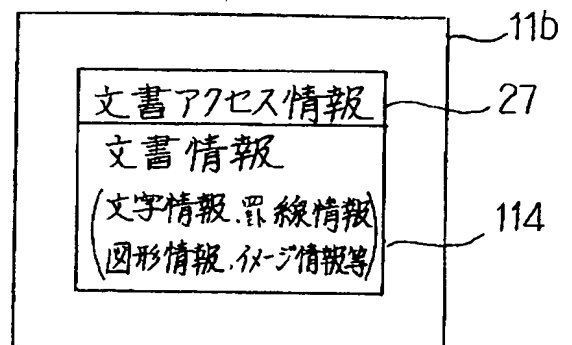 11b
文書アクセス情報
27
文書情報
(文字情報、罫線情報
図形情報、イメージ情報等)
114